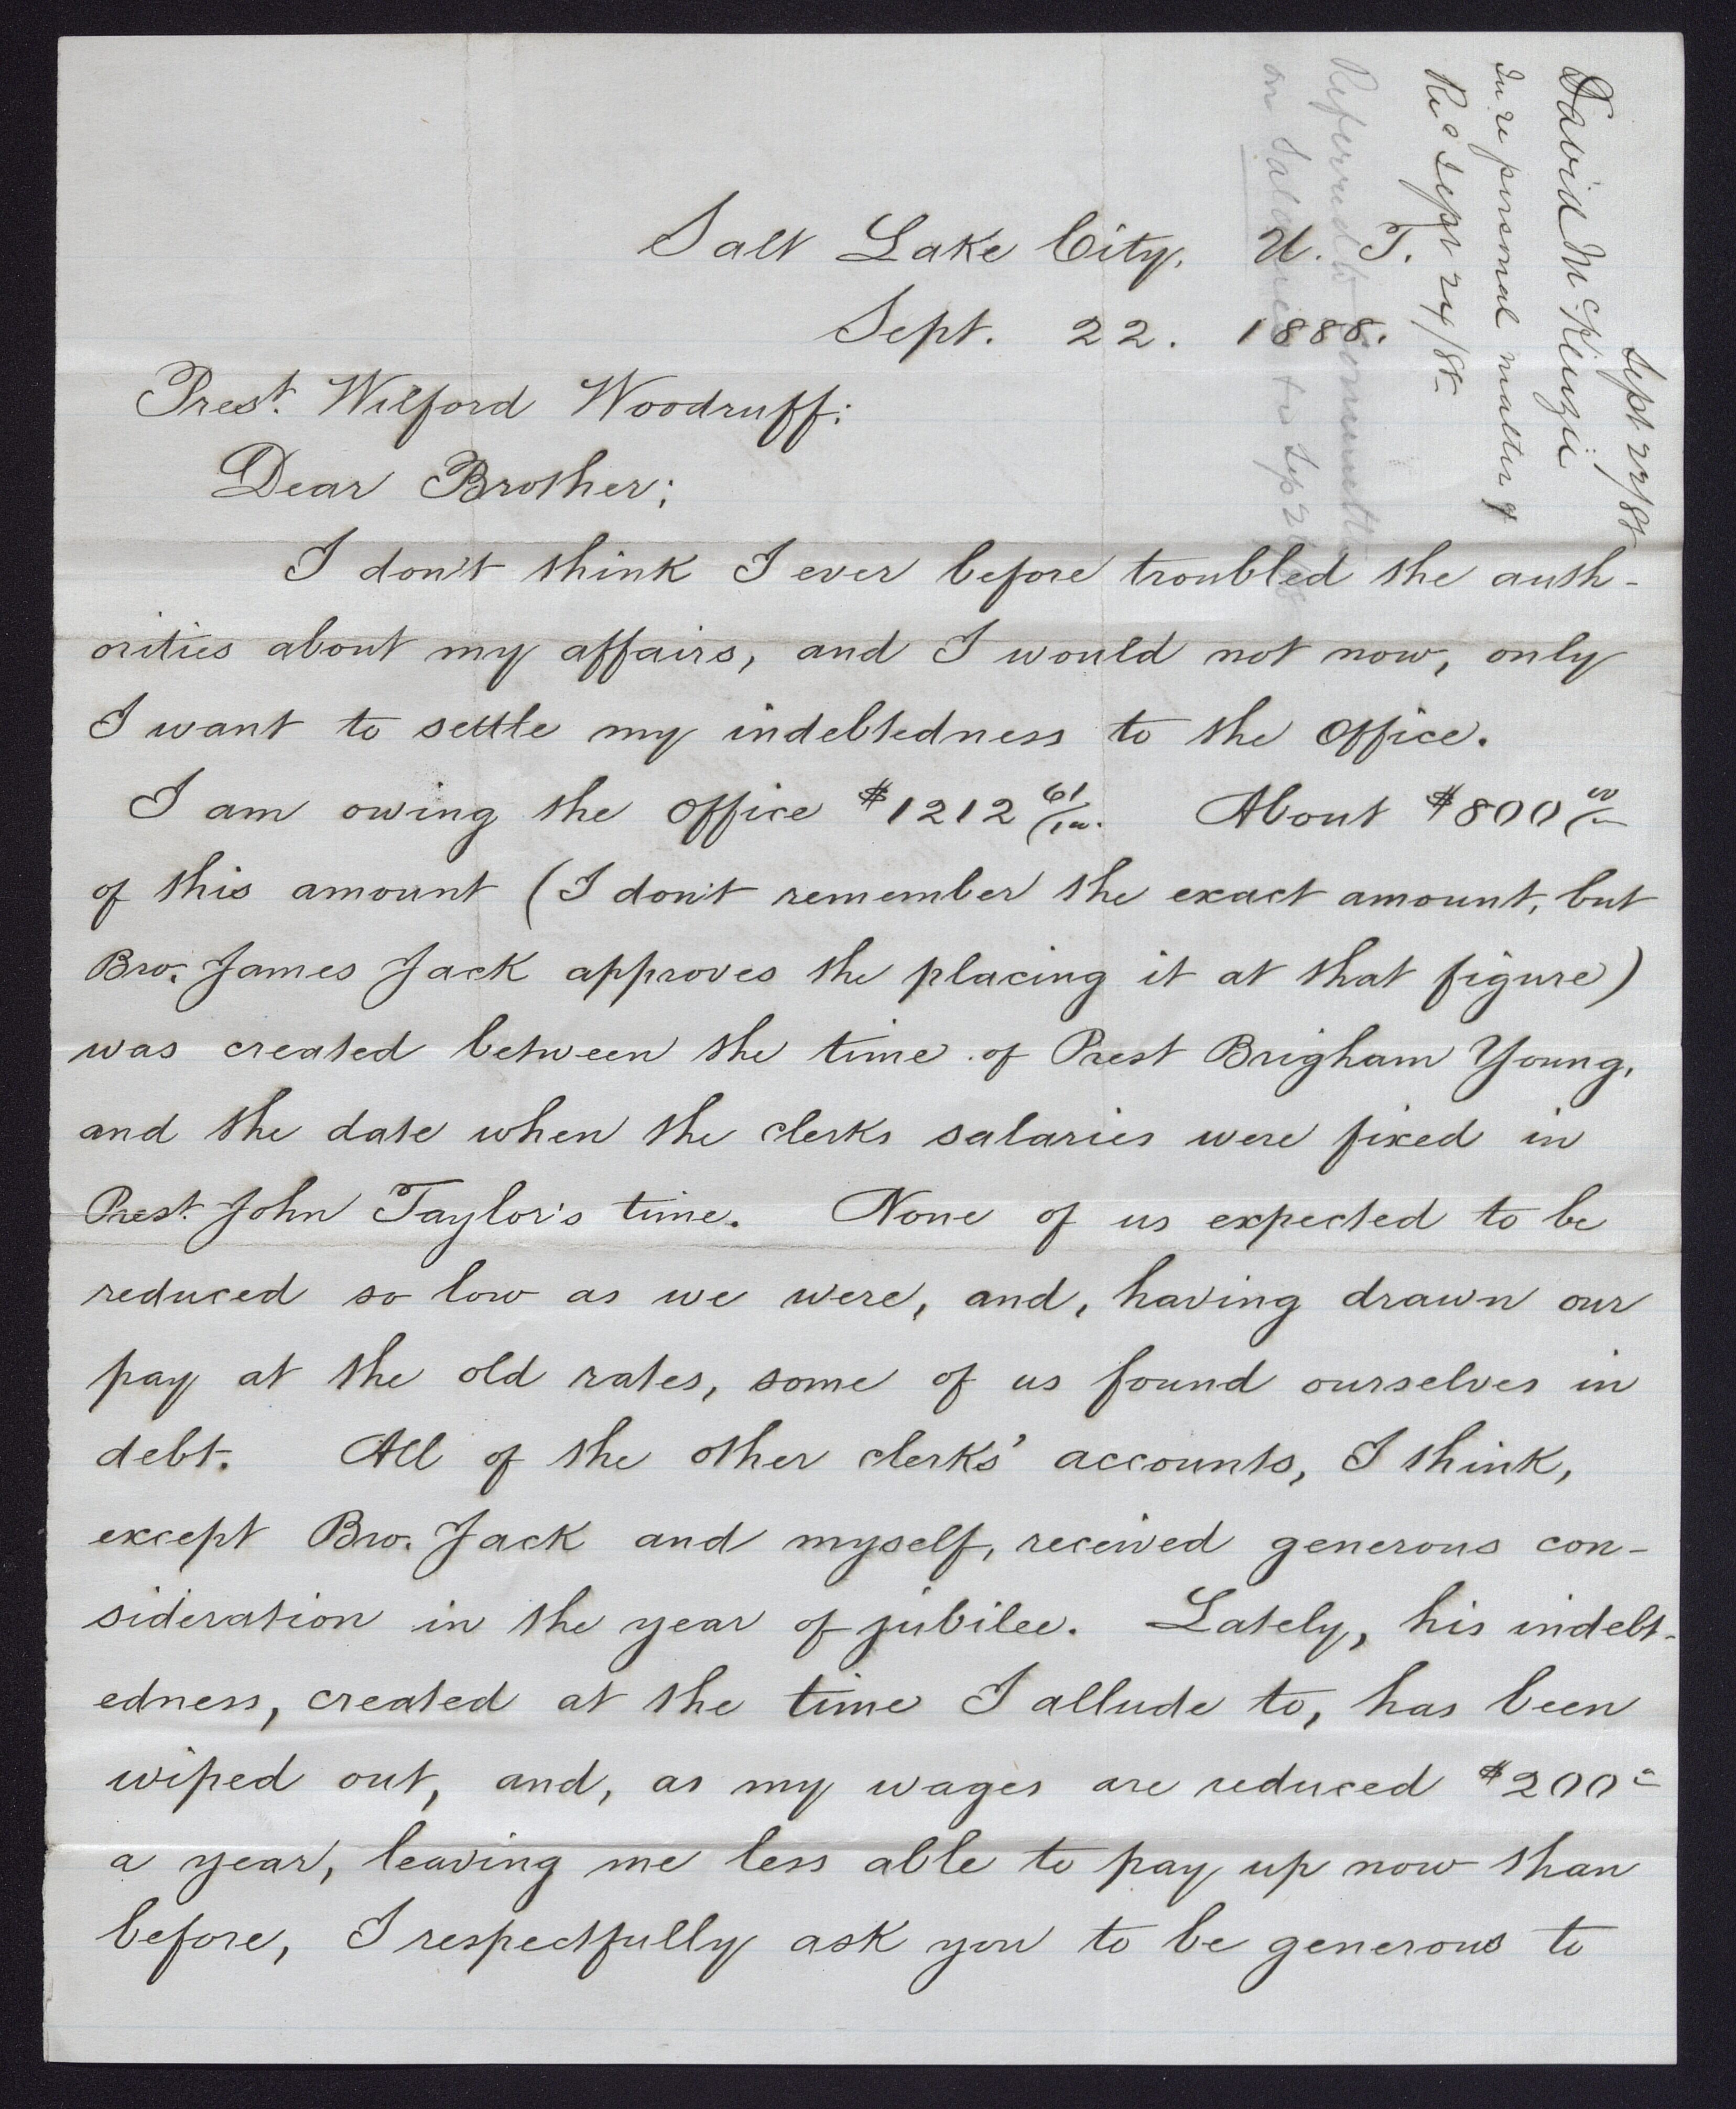 Sept 22/88
David McKenzie
In re personal matters
Rec Sept 24/88
Referred to Committee
on Salaries
Salt Lake City, U. T.
Sept. 22. 1888.
Prest. Wilford Woodruff:
Dear Brother;
I don't think I ever before troubled the auth-
orities about my affairs, and I would not now, only
I want to settle my indebtedness to the Office.
I am owing the Office $1212 61/100. About $800 00/
of this amount (I don't remember the exact amount, but
Bro. James Jack approves the placing it at that figure)
was created between the time of Prest Brigham Young,
and the date when the clerks salaries were fixed in
Prest. John Taylor's time. None of us expected to be
reduced so low as we were, and, having drawn our
pay at the old rates, some of us found ourselves in
debt. All of the other clerks' accounts, I think,
except Bro. Jack and myself, received generous con-
sideration in the year of jubilee. Lately, his indebt-
edness, created at the time I allude to, has been
wiped out, and, as my wages are reduced $200
a year, leaving me less able to pay up now than
before, I respectfully ask you to be generous to